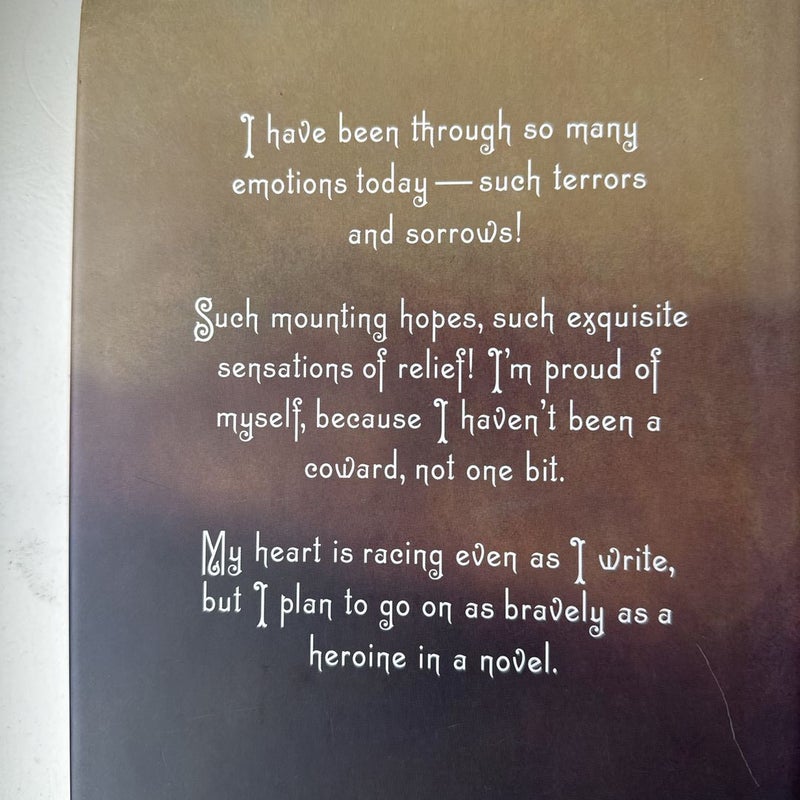 I have been through so many
emotions today — such terrors
and sorrows!
Such mounting hopes, such exquisite
sensations of relief! I'm proud of
myself, because I haven't been a
coward, not one bit.
My heart is racing even as I write,
but I plan to go on as bravely as a
heroine in a novel.